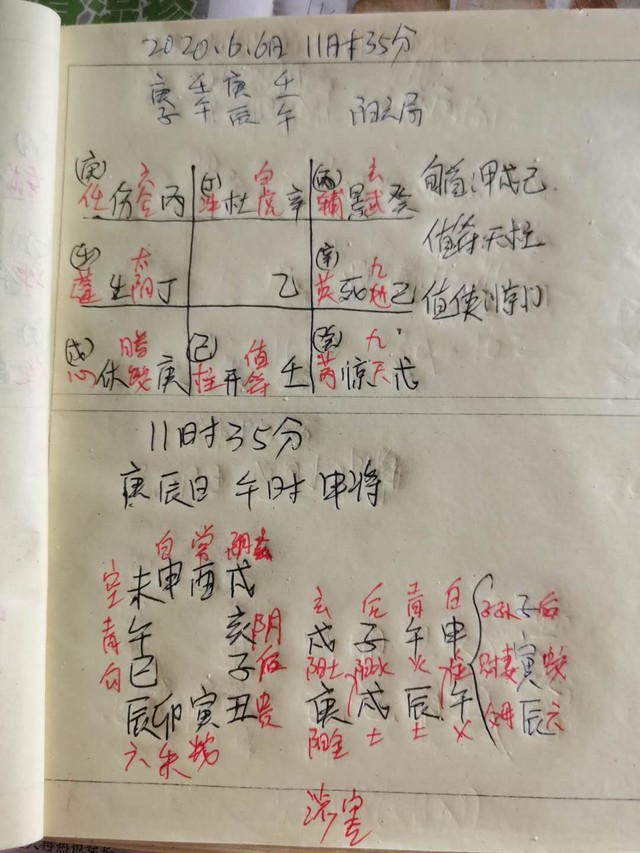 2020.6.6日 11时35分
庚 壬 庚 壬
子 午 辰 午 阳六局
(庚) 六 白 (丙) 玄
任 伤 合 丙 杜 虎 辛 辅 景 武 癸 旬首:甲戌己
太 九 值符天柱
蓬 生 阴 丁 乙 英 死 地 己 值使惊门
(戊) 螣 (己) 值 九
心 休 蛇 庚 柱 开 符 壬 芮 惊 天 戊
11时35分
庚辰日 午时 申将
白 常 阴
空 未 申 酉 戌 玄 后 青 白 子 后
青 午 亥 阴 戌 子 午 申 财妻 寅 蛇
勾 巳 子 后 阳土 阳水 火
辰 卯 寅 丑 贵 庚 戌 辰 午 辰 六
六 朱 蛇 阳金 土 土 火